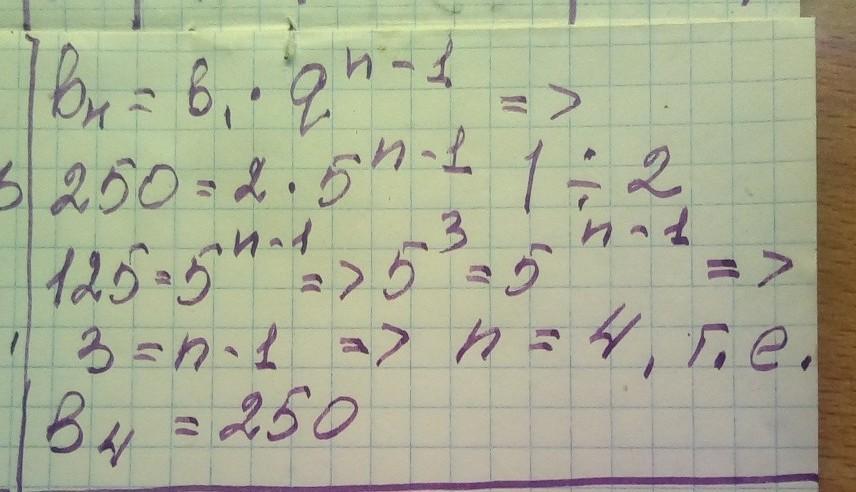 вₙ = в₁ · q^(n-1) =>
250 = 2 · 5^(n-1) | ÷ 2
125 = 5^(n-1) => 5^3 = 5^(n-1) =>
3 = n - 1 => n = 4, т.е.
в₄ = 250